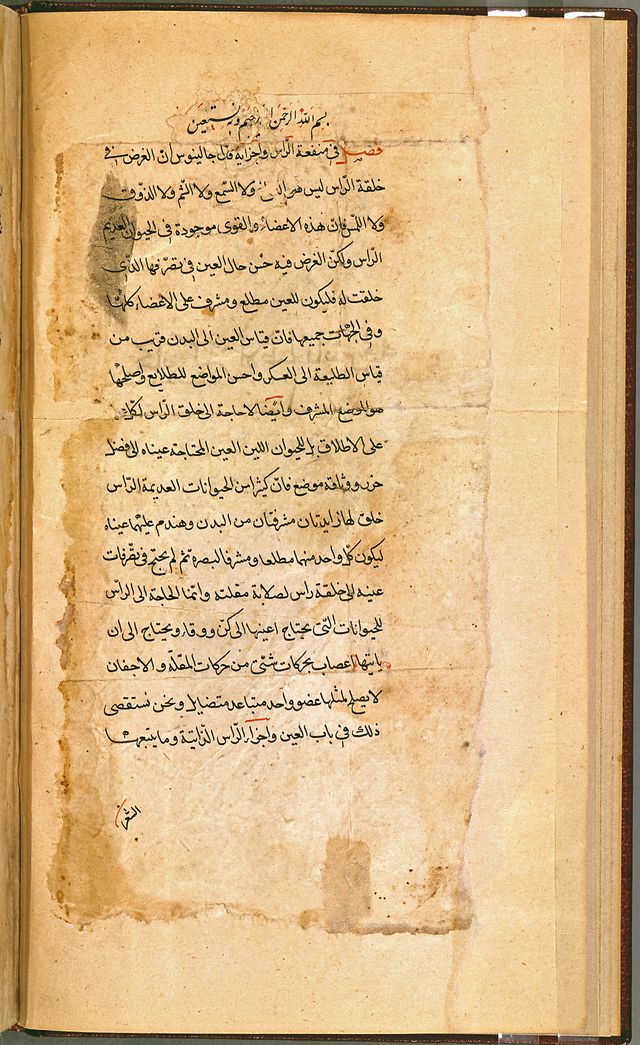 بسم الله الرحمن الرحيم وبه نستعين
فصل في منفعة الرأس وأجزائه قال جالينوس ان الغرض في
خلقة الرّاس ليس هو ولا السمع ولا الشم ولا الذوق
ولا اللمس فانّ هذه الاعضاء والقوى موجودة في الحيوان العديم
الرّاس ولكنّ الغرض فيه حُسن حال العين في تصرّفها الذي
خلقت له فليكون للعين مطلع ومشرف على الاعضاء كلها
وفي الجهات جميعها فانّ قياس العين الى البدن قريب من
قياس الطليعة الى العسكر واحسن المواضع للطلايع واصلحها
هو الموضع المشرف وايضا لا حاجة الى خلق الرّاس لكل
على الاطلاق بل للحيوان اللين العين المحتاجة عيناه الى فضل
حرز ووثاقة موضع فانّ كثيرا من الحيوانات العديمة الرّاس
خلق لها زايدتان مشرفتان من البدن وهندم عليهما عيناه
ليكون لكل واحد منهما مطلعا ومشرفا لبصره ثم لم يحتج في تصرفات
عينه الى خلقة راس لصلابة مقلته وانما الحاجة الى الرّاس
للحيوانات التي يحتاج اعينها الى كنّ ووقاء ويحتاج الى ان
ياتيها اعصاب بحركات شتى من حركات المقلة والاجفان
لا يصلح لمثلها عضو واحد متباعد متضايل ونحن نستقصى
ذلك في باب العين واجزاء الرّاس الذاتية وما يتبعها
الشعر